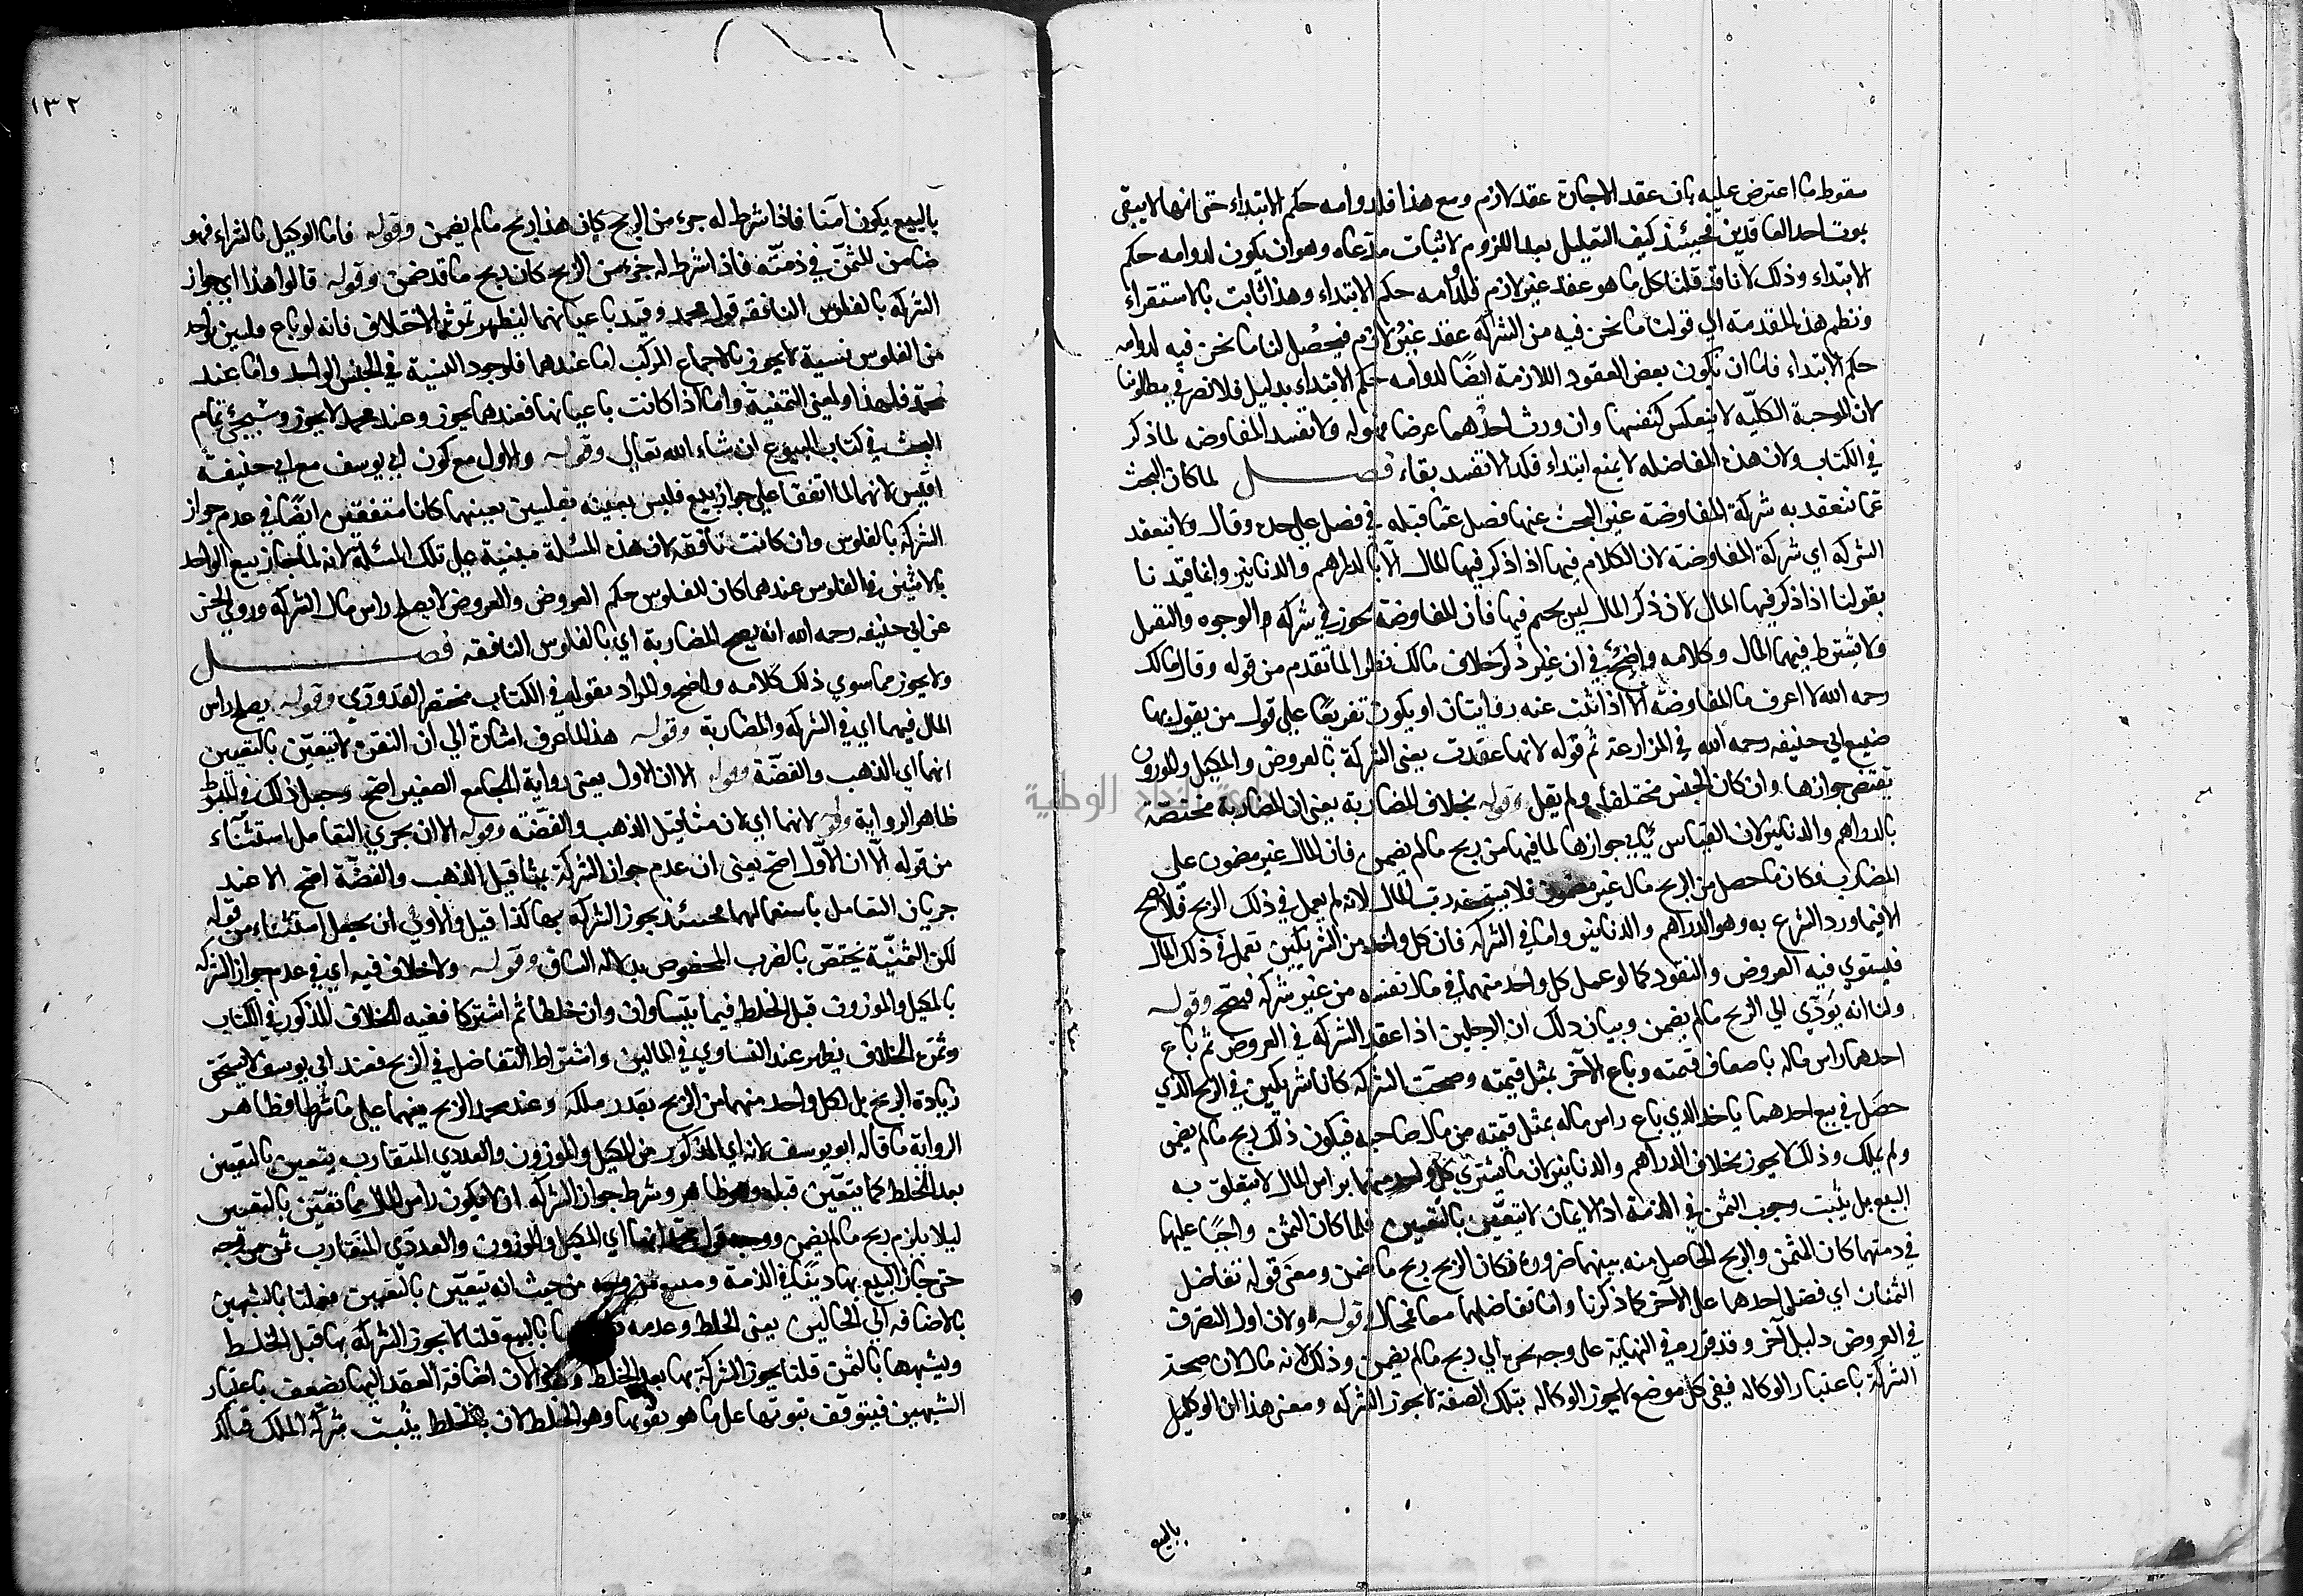 سقوط ما اعترض عليه بان عقد الاجارة عقد لازم ومع هذا فلدوامه حكم الابتداء حتى انها لا يبقى
بموت احد العاقدين فحينئذ كيف التعليل بعد اللزوم لاثبات مدعاه وهو ان يكون لدوامه حكم
الابتداء وذلك لانا قد قلنا كل ما هو عقد غير لازم فلدوامه حكم الابتداء وهذا ثابت بالاستقراء
ونظم هذه المقدمة الي قولنا ما نحن فيه من الشركة عقد غير لازم فيحصل لنا ما نحن فيه لدوامه
حكم الابتداء فاما ان يكون بعض العقود اللازمة ايضا لدوامه حكم الابتداء بدليل فلا تضر في مطلوبنا
لان الموجبة الكليّه لا ينعكس كنفسها وان ورث احدهما عرضا فهو له ولا تفسد المفاوضه لما ذكر
في الكتاب ولان هذه المفاضله لا يمنع ابتداء فكذا لا تفسد بقاء فصل لما كان البحث
عما تنعقد به شركة المفاوضة غير البحث عنها فصل عما قبله في فصل علي حده وقال ولا تنعقد
الشركة اي شركة المفاوضة لان الكلام فيها اذا ذكر فيها المال الا بالدراهم والدنانير وانما قيدنا
بقولنا اذا ذكر فيها المال لان ذكر المال ليس بحتم فيها فان المفاوضة تجوز في شركة الوجوه والتقبل
ولا يشترط فيهما المال وكلامه واضح في ان غير ذكر خلاف مالك نظرا لما تقدم من قوله وقال مالك
رحمه الله لا اعرف ما المفاوضة الا اذا ثبت عنه روايتان او يكون تفريعا علي قول من يقول بها
صنيع ابي حنيفه رحمه الله في المزارعة ثم قوله لانها عقدت يعني الشركة بالعروض والمكيل والموزون
يقتضي جوازها وان كان الجنس مختلفا ولم يقل وقوله بخلاف المضاربة يعني ان المضاربة مختصة
بالدراهم والدنانير لان القياس يأبي جوازها لما فيها من ربح ما لم يضمن فان المال غير مضمون علي
المضارب فكان ما حصل من الربح مال غير مضمون فلا يستحقه رب المال لانه لم يعمل في ذلك الربح فلا يصح
الا فيما ورد الشرع به وهو الدراهم والدنانير واما في الشركة فان كل واحد من الشريكين تعمل في ذلك المال
فيستوي فيه العروض والنقود كما لو عمل كل واحد منهما في مال نفسه من غير شركة فيصح وقوله
ولنا انه يؤدّي الي الربح ما لم يضمن وبيان ذلك ان الرجلين اذا عقدا الشركة في العروض ثم باع
احدهما راس ماله باضعاف قيمته وباع الآخر بمثل قيمته وصحت الشركة كانا شريكين في الربح الذي
حصل في بيع احدهما ياخذ الذي باع راس ماله بمثل قيمته من مال صاحبه فيكون ذلك ربح ما لم يضمن
ولم يملك وذلك لا يجوز بخلاف الدراهم والدنانير لان ما يشتري كل واحد منهما براس المال لا يتعلق به
البيع بل يثبت وجوب الثمن في الذمة اذ الاثمان لا يتعين بالتعيين فلما كان الثمن واجبًا عليهما
في ذمتهما كان المثمن والربح الحاصل منه بينهما ضرورة فكان الربح ربح ما ضمن ومعنى قوله تفاضل
الثمنان اي فضل احدهما على الآخر كما ذكرنا واما تفاضلهما معا فمحال وقوله ولان اول التصرف
في العروض دليل آخر وقد قرره في النهاية على وجه يجر الي ربح ما لم يضمن وذلك لانه قال لان صحة
الشركة باعتبار الوكالة ففي كل موضع لا يجوز الوكالة بتلك الصفة لا يجوز الشركة ومعنى هذا ان الوكيل
بالبيع
١٣٢
بالبيع يكون آمنا فاذا شرط له جزء من الربح كان هذا ربح ما لم يضمن وقوله فاما الوكيل بالشراء فهو
ضامن للثمن في ذمته فاذا شرط له جزء من الربح كان ربح ما قد ضمن وقوله قالوا هذا اي جواز
الشركة بالفلوس النافقة قول محمد وقيد باعيانهما ليظهر ثمرة الاختلاف فانه لو باع فلسين بواحد
من الفلوس نسية لا يجوز بالاجماع المركب اما عندهما فلوجود النسية في الجنس الواحد واما عند
محمد فلهذا ولمعنى الثمنية واما اذا كانت باعيانها فعندهما يجوز وعند محمد لا يجوز وسيجئ تمام
البحث في كتاب البيوع ان شاء الله تعالي وقوله والاول مع كون ابي يوسف مع ابي حنيفة
اقيس لانهما لما اتفقا علي جواز بيع فلس بعينه بفلسين بعينهما كانا متفقين ايضا في عدم جواز
الشركة بالفلوس وان كانت نافقة لان هذه المسئلة مبنية على تلك المسئلة لانه لما جاز بيع الواحد
بالاثنين في الفلوس عندهما كان للفلوس حكم العروض والعروض لا يصلح راس مال الشركة وروي الحسن
عن ابي حنيفه رحمه الله انه يصح المضاربة اي بالفلوس النافقه فصل
ولا يجوز مما سوي ذلك كلامه واضح والمراد بقوله في الكتاب مختصر القدوري وقوله يصلح راس
المال فيهما اي في الشركة والمضاربة وقوله هذا لما عرف اشارة الي ان النقرة لا يتعين بالتعيين
انها اي الذهب والفضة وقوله الا ان الاول يعني رواية الجامع الصغير اصح وجعل ذلك في المبسوط
ظاهر الرواية وقوله لانها اي لان مثاقيل الذهب والفضة وقوله الا ان يجري التعامل استثناء
من قوله الا ان الاول اصح يعني ان عدم جواز الشركة بمثاقيل الذهب والفضة اصح الا عند
جريان التعامل باستعمالهما فحينئذ يجوز الشركة بها كذا قيل والاولي ان يجعل استثناء من قوله
لكن الثمنية يختص بالضرب المخصوص بدلالة الساق وقوله ولا خلاف فيه اي في عدم جواز الشركة
بالمكيل والموزون قبل الخلط فيما يتساوان وان خلطا ثم اشتركا ففيه الخلاف المذكور في الكتاب
وثمرة الخلاف يظهر عند التساوي في المالين واشتراط التفاضل في الربح فعند ابي يوسف لا يستحق
زيادة الربح بل لكل واحد منهما من الربح بقدر ملكه وعند محمد الربح بينهما علي ما شرطا وظاهر
الرواية ما قاله ابو يوسف لانه اي المذكور من المكيل والموزون والعددي المتقارب يتعين بالتعيين
بعد الخلط كما يتعين قبله وهو ظاهر وشرط جواز الشركة ان لا يكون راس المال مما يتعين بالتعيين
ليلا يلزم ربح ما لم يضمن ووجه قول محمد انها اي المكيل والموزون والعددي المتقارب ثمن من وجه
حتى جاز البيع بها دينًا في الذمة ومبيع من وجه من حيث انه يتعين بالتعيين فعملنا بالشبهين
بالاضافه الي الحالين يعني الخلط وعدمه بالبيع قلنا لا يجوز الشركة بها قبل الخلط
ويشبهها بالثمن قلنا يجوز الشركة بها بعد الخلط وهذا لان اضافة العقد اليها يضعف باعتبار
الشبهين فيتوقف ثبوتها على ما هو يقويها وهو الخلط لان بالخلط يثبت شركة الملك